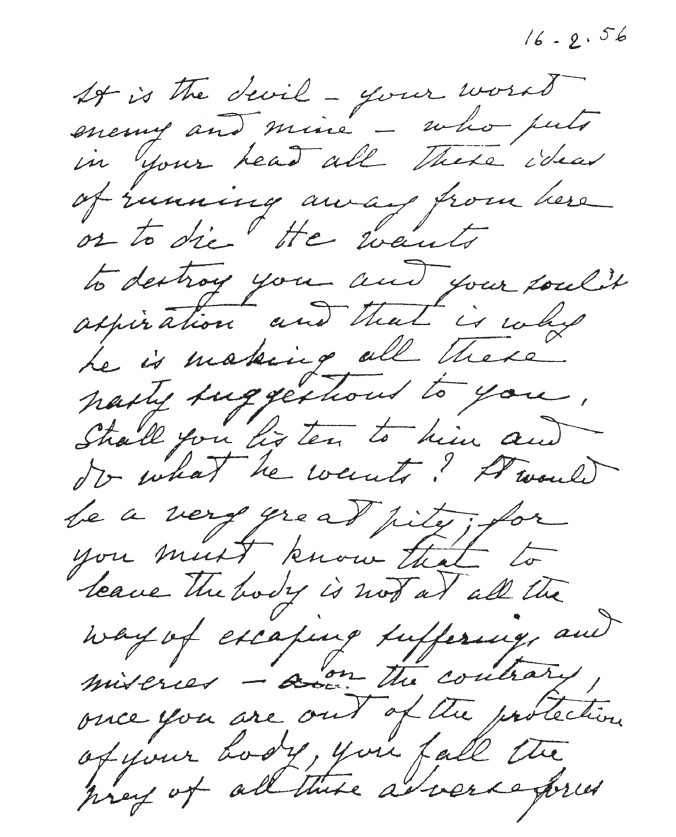 16-2.56
It is the devil – your worst
enemy and mine – who puts
in your head all these ideas
of running away from here
or to die He wants
to destroy you and your soul's
aspiration and that is why
he is making all these
nasty suggestions to you.
Shall you listen to him and
do what he wants? It would
be a very great pity; for
you must know that to
leave the body is not at all the
way of escaping sufferings and
miseries – on the contrary,
once you are out of the protection
of your body, you fall the
prey of all these adverse forces